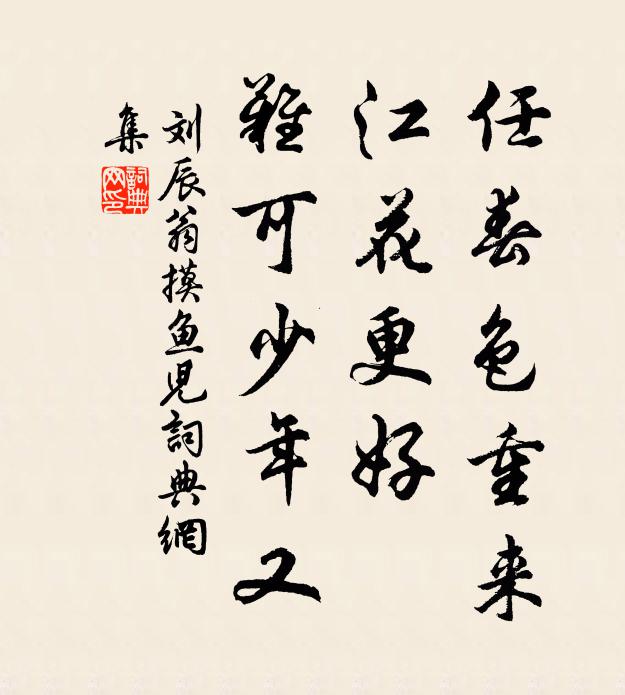 任春色重来
江花更好
难可少年又
刘辰翁摸鱼児詞典網
集
詞典网印